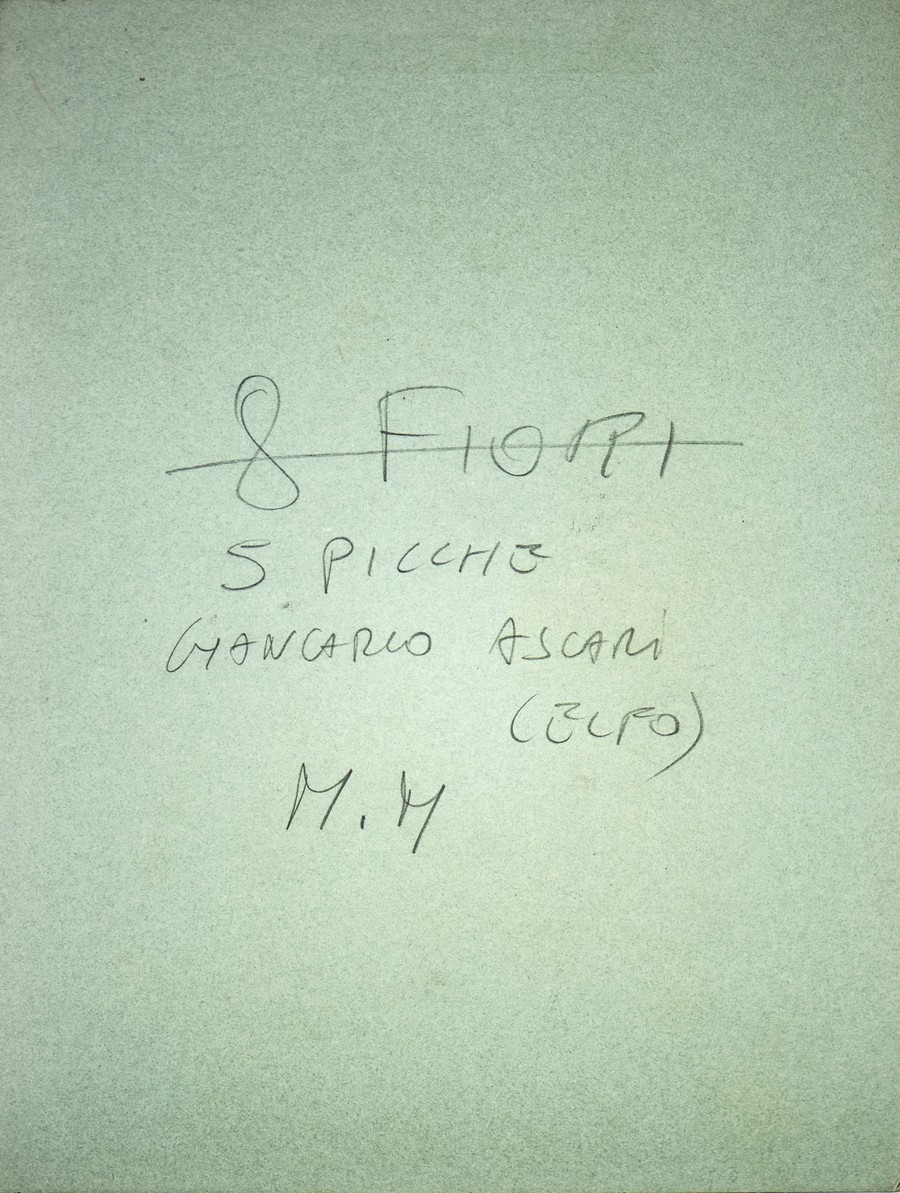 8 FIORI
5 PICCHE
GIANCARLO ASCARI
(ELFO)
M.M